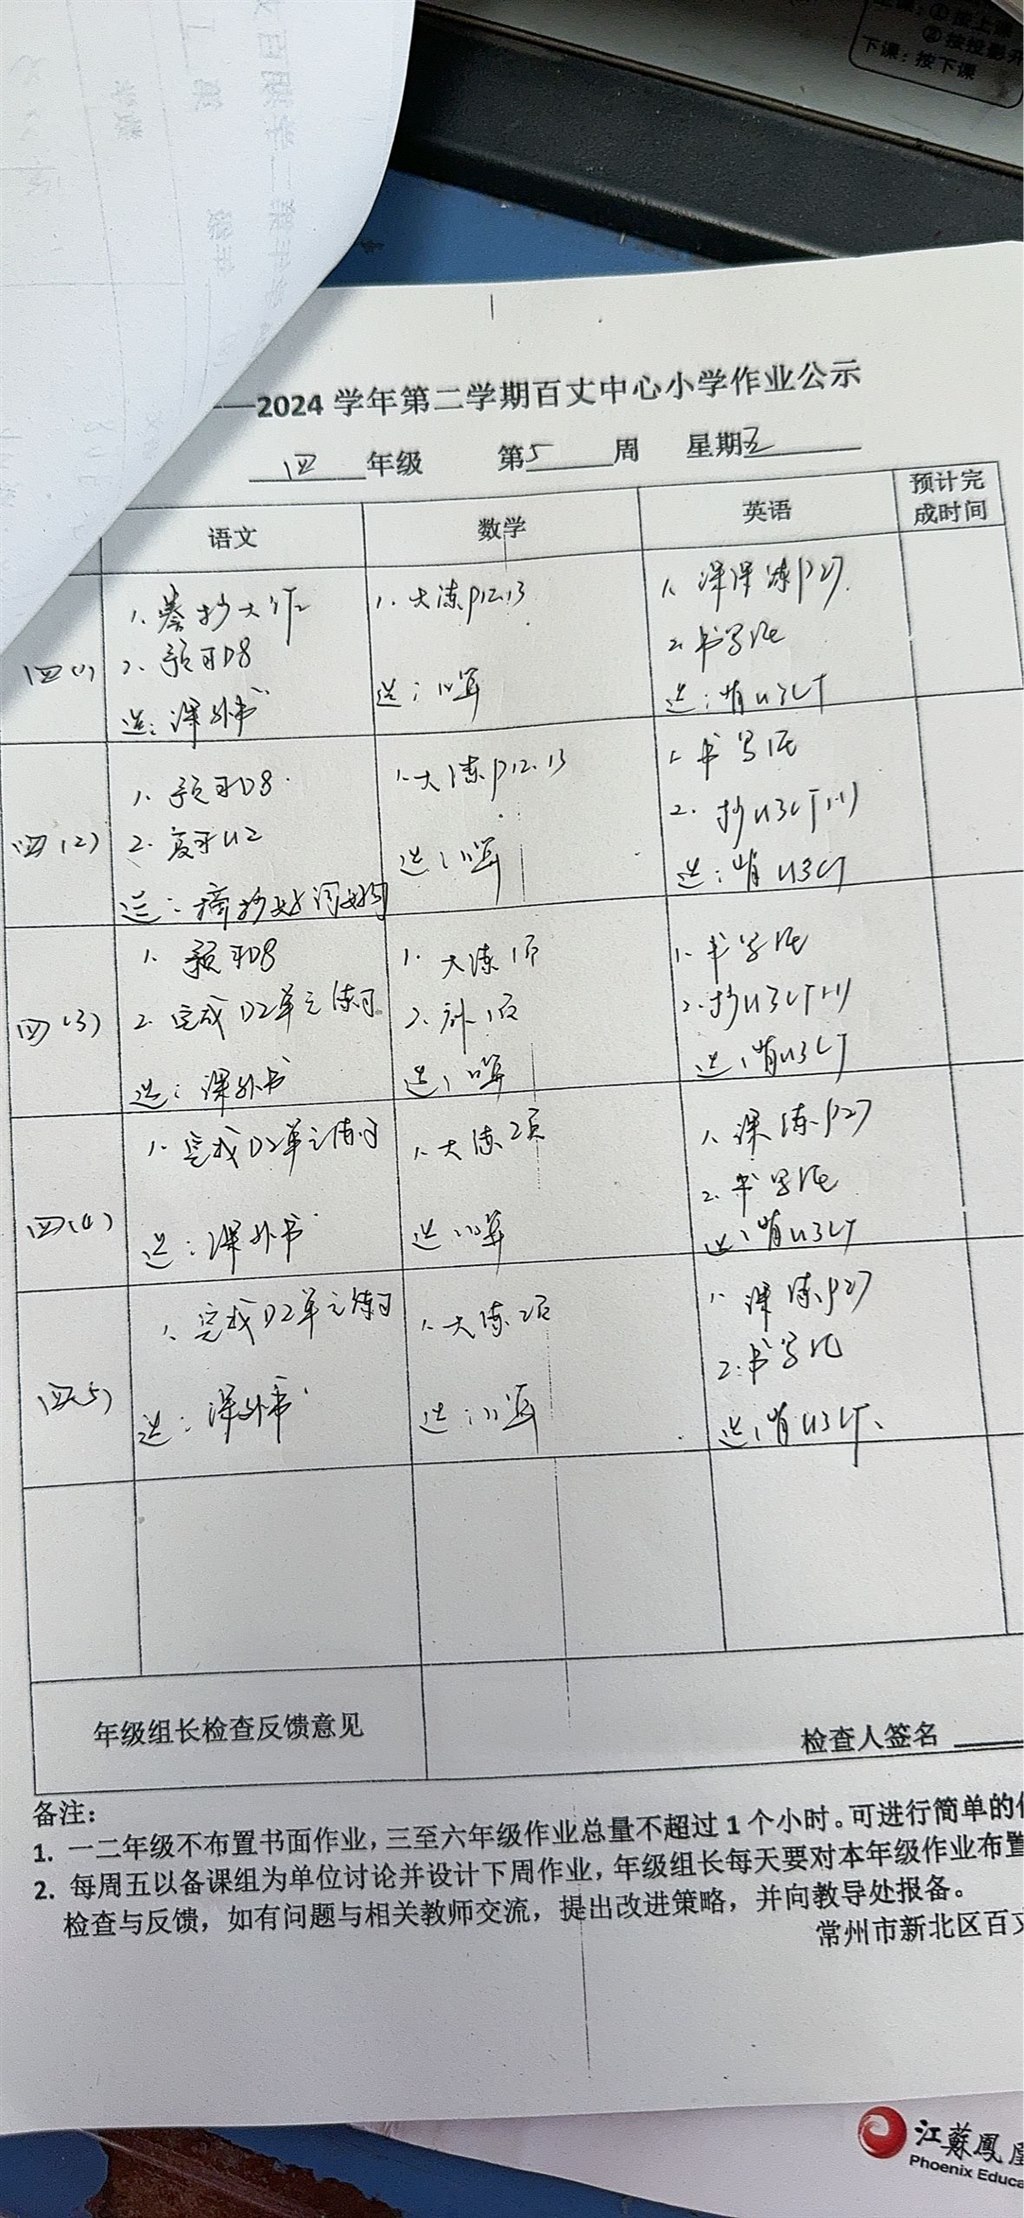 ②按投影
下课：按下课
——2024 学年第二学期百丈中心小学作业公示
四 年级 第5周 星期五
语文 数学 英语 预计完成时间
四(1)
1. 誊抄大作
2. 预习D8
选：课外书
1. 大练P12.13
选：口算
1. 课课练P27.
2. 书写1E
选：背U3CT
四(2)
1. 预习D8.
2. 复习U2
选：摘抄好词好句
1. 大练P12.13
选：口算
1. 书写1E
2. 抄U3CT1+1
选：背U3CT
四(3)
1. 预习D8
2. 完成D2单元练习
选：课外书
1. 大练1页
2. 补1页
选：口算
1. 书写1E
2. 抄U3CT1+1
选：背U3CT
四(4)
1. 完成D2单元练习
选：课外书
1. 大练2页
选：口算
1. 课练P27
2. 书写1E
选：背U3CT
四(5)
1. 完成D2单元练习
选：课外书
1. 大练2页
选：口算
1. 课练P27
2. 书写1E
选：背U3CT
年级组长检查反馈意见
检查人签名
备注：
1. 一二年级不布置书面作业，三至六年级作业总量不超过 1 个小时。可进行简单的
2. 每周五以备课组为单位讨论并设计下周作业，年级组长每天要对本年级作业布置
检查与反馈，如有问题与相关教师交流，提出改进策略，并向教导处报备。
常州市新北区百丈
江蘇鳳凰
Phoenix Educa